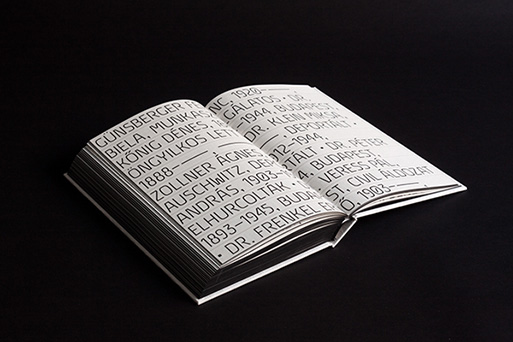 GÜNSBERGER
BÉLA, MUNKÁS
KÖNIG DÉNES,
ÖNGYILKOS LETT
1888
ZOLLNER ÁGNES
AUSCHWITZ, DEP
ANDRÁS, 1903–
ELHURCOLTÁK •
1893–1945, BUDA
• DR. FRENKEL
NC, 1920–
GÁLATOS • DE
–1944, BUDAPEST
DR. KLEIN MIKSA,
DEPORTÁLT •
1912–1944,
TÁLT • DR. PÉTER
4, BUDAPES
VERESS PÁL,
T, CIVIL ÁLDOZAT
Ő, 1903